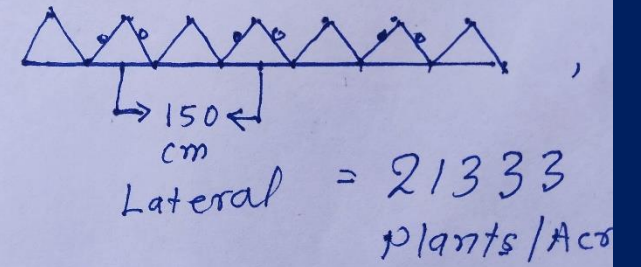 → 150 ←
cm
Lateral = 21333
Plants/Acr